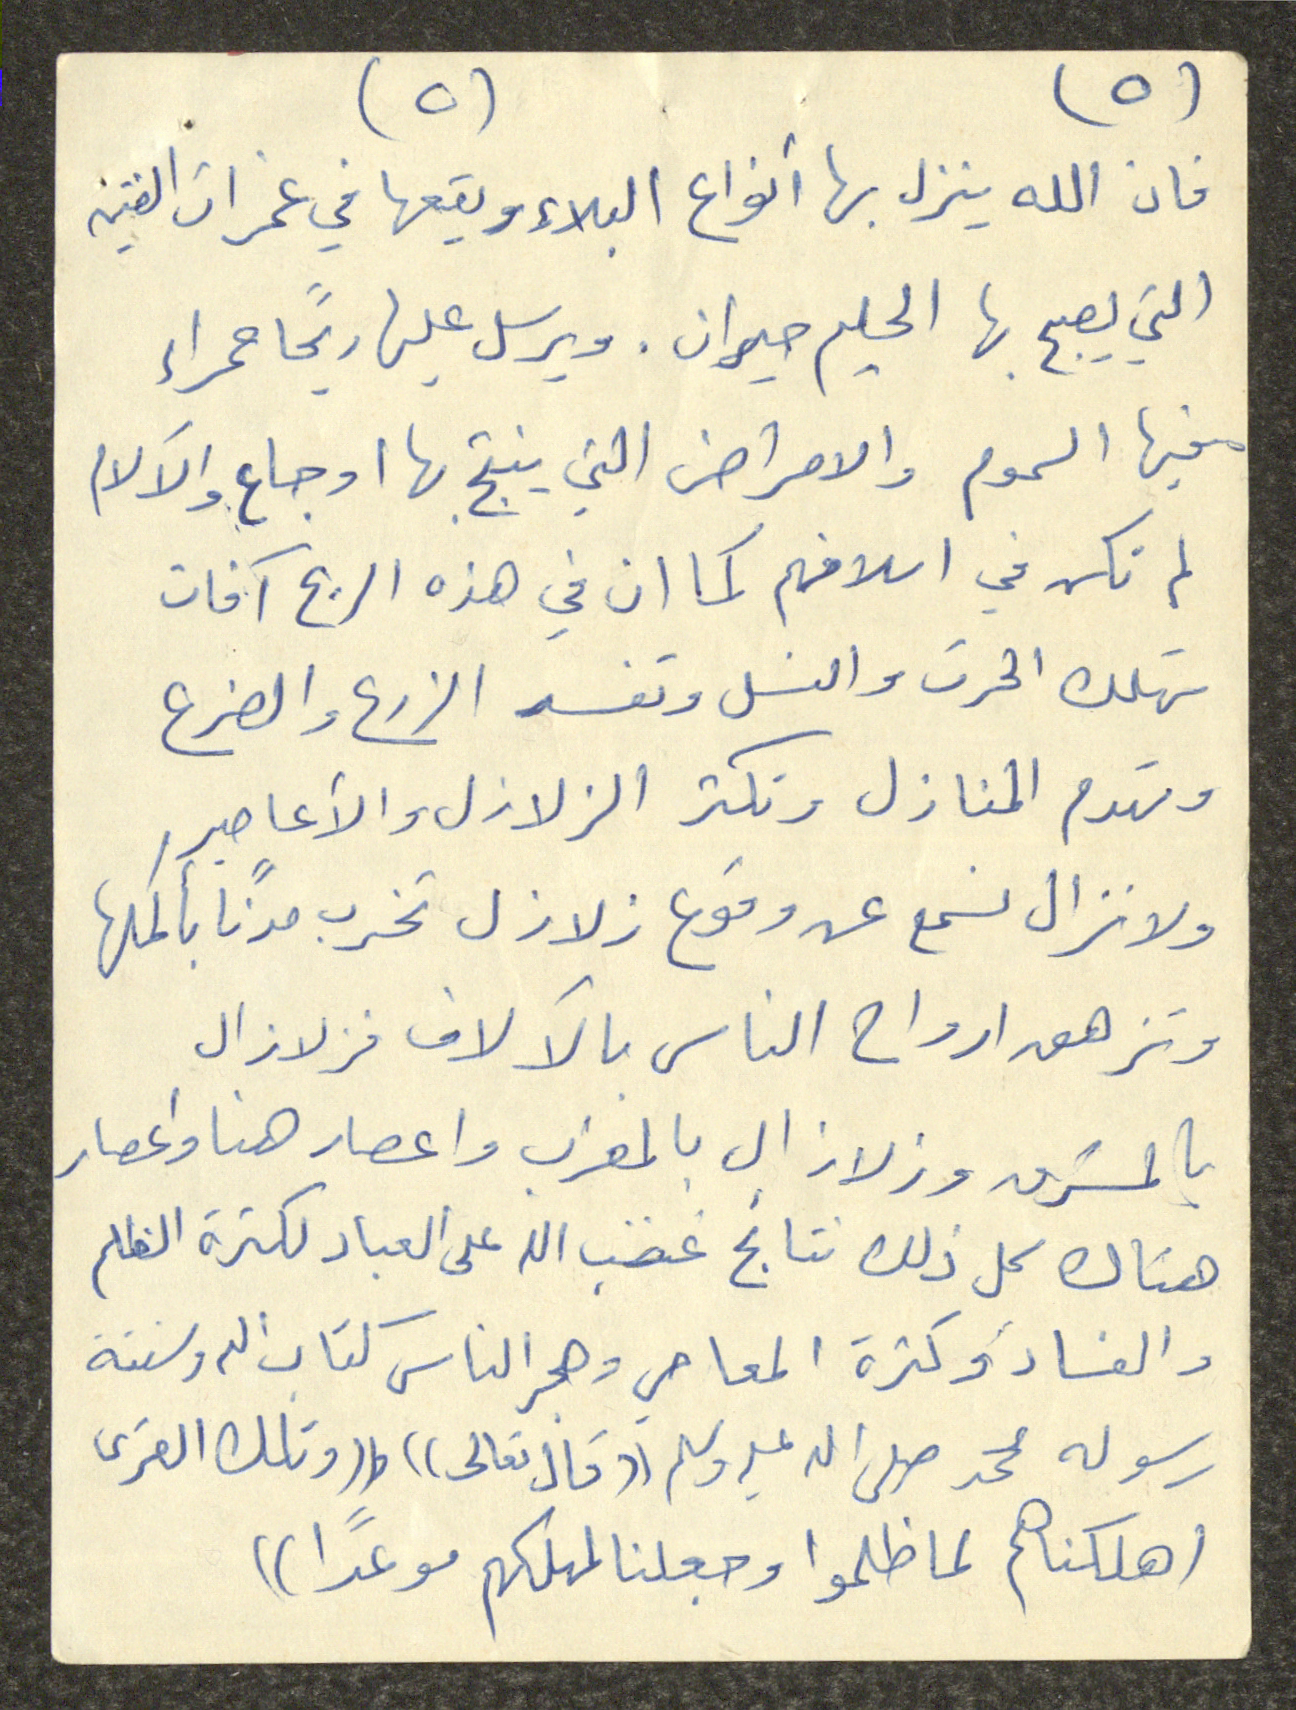 (٥) (٥)
فان الله ينزل بها أنواع البلاء ويقعها في غمرات الفتن
التي يصبح بها الحليم حيران . ويرسل عليها ريحًا حمراء
فيها السموم والامراض التي ينتج بها اوجاع والآلام
لم تكن في اسلافهم كما ان في هذه الريح آفات
تهلك الحرث والنسل وتفسد الزرع والضرع
وتهدم المنازل وتكثر الزلازل والأعاصير
ولا نزال نسمع عن وقوع زلازل تخرب مدنًا بأكملها
وتزهق ارواح الناس بالآلاف فزلازال
بالمشرق وزلازال بالمغرب واعصار هنا واعصار
هناك كل ذلك نتائج غضب الله على العباد لكثرة الظلم
والفساد وكثرة المعاصي وهجر الناس كتاب الله وسنة
رسوله محمد صلى الله عليه وسلم ((قال تعالى)) ((وتلك القرى
اهلكناهم لما ظلموا وجعلنا لمهلكهم موعدًا))